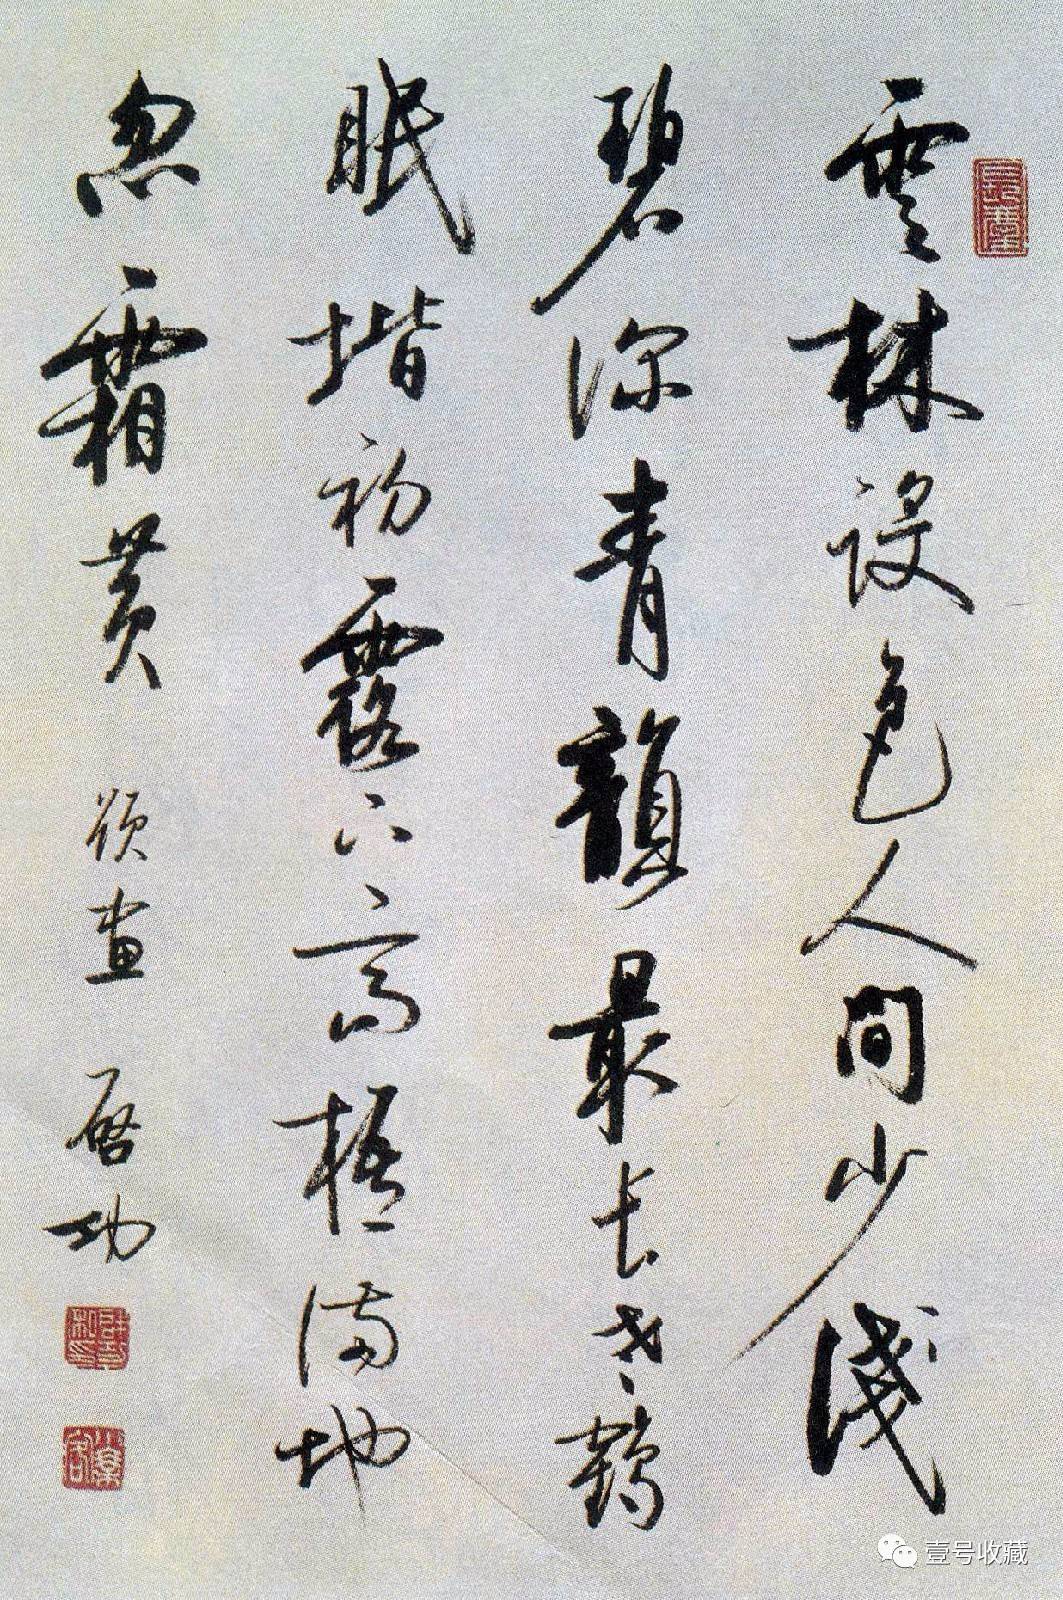 雲林設色人間少淺
碧深青韻最長老鶴
眠堦初露下高梧滿地
忽霜黃 題畫 啓功
壹号收藏